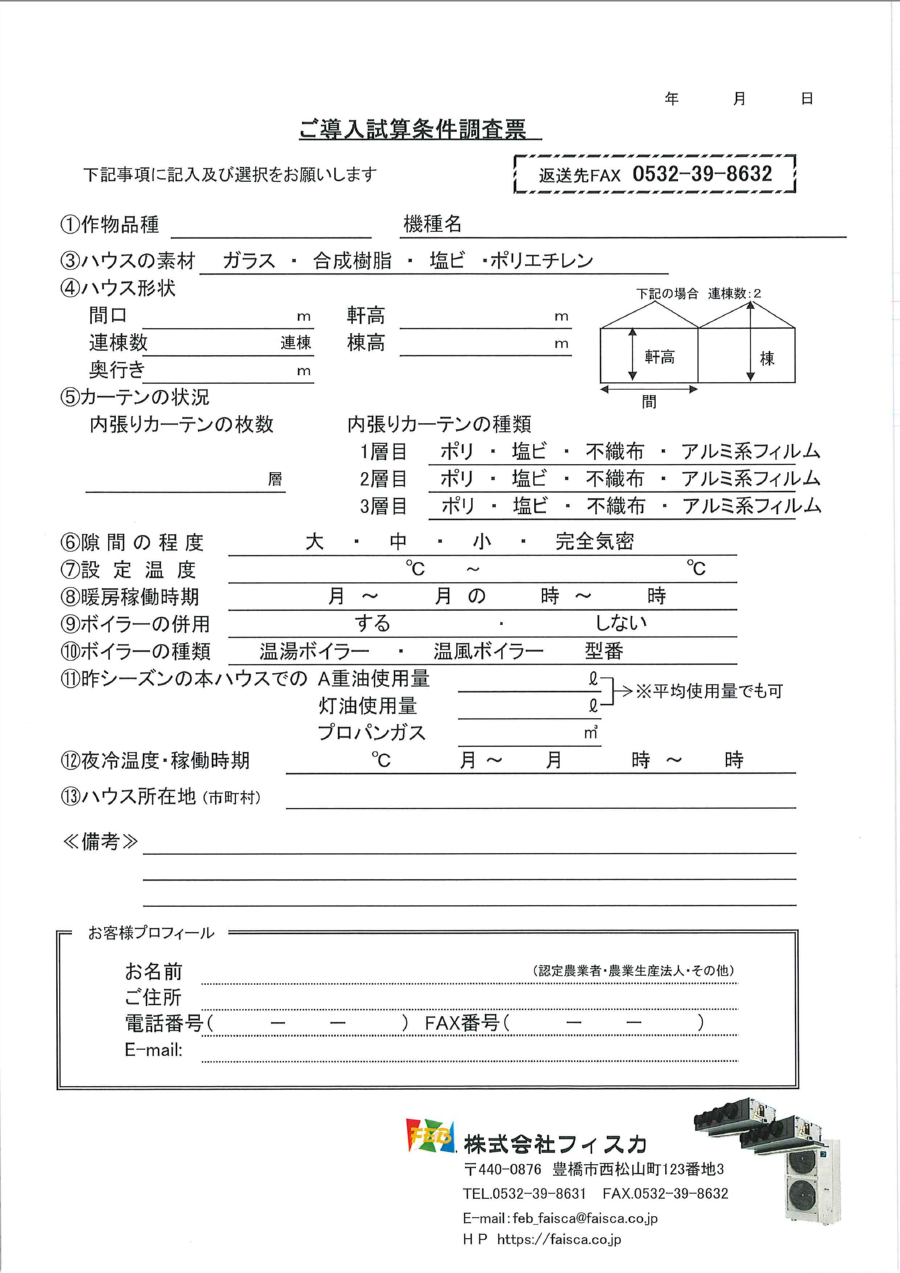 年 月 日
ご導入試算条件調査票
下記事項に記入及び選択をお願いします
返送先FAX 0532-39-8632
①作物品種 機種名
③ハウスの素材 ガラス ・ 合成樹脂 ・ 塩ビ ・ポリエチレン
④ハウス形状
下記の場合 連棟数:2
間口 m 軒高 m
連棟数 連棟 棟高 m
軒高 棟
奥行き m
間
⑤カーテンの状況
内張りカーテンの枚数 内張りカーテンの種類
1層目 ポリ ・ 塩ビ ・ 不織布 ・ アルミ系フィルム
層 2層目 ポリ ・ 塩ビ ・ 不織布 ・ アルミ系フィルム
3層目 ポリ ・ 塩ビ ・ 不織布 ・ アルミ系フィルム
⑥隙間の程度 大 ・ 中 ・ 小 ・ 完全気密
⑦設定温度 ℃ ～ ℃
⑧暖房稼働時期 月 ～ 月 の 時 ～ 時
⑨ボイラーの併用 する ・ しない
⑩ボイラーの種類 温湯ボイラー ・ 温風ボイラー 型番
⑪昨シーズンの本ハウスでの A重油使用量 ℓ
灯油使用量 ℓ
※平均使用量でも可
プロパンガス ㎥
⑫夜冷温度・稼働時期 ℃ 月 ～ 月 時 ～ 時
⑬ハウス所在地 (市町村)
≪備考≫
お客様プロフィール
お名前 (認定農業者・農業生産法人・その他)
ご住所
電話番号( － － ) FAX番号( － － )
E-mail:
FEB 株式会社フィスカ
〒440-0876 豊橋市西松山町123番地3
TEL.0532-39-8631 FAX.0532-39-8632
E-mail:feb_faisca@faisca.co.jp
HP https://faisca.co.jp